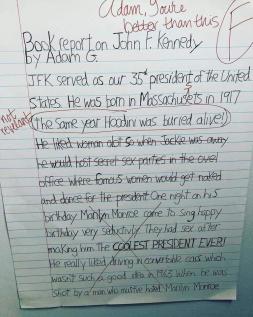 Adam, you're
better than this
F
Book report on John F. Kennedy
by Adam G.
JFK served as our 35th president of the United
States. He was born in Massachusets in 1917
not relevant
(the same year Hoodini was buried alive)
He liked woman alot so when Jackie was away
he would host secret sex parties in the ovel
office where famous women would get naked
and dance for the president. One night on his
birthday Marilyn Monroe came to sing happy
birthday very seductivly. They had sex after
making him the COOLEST PRESIDENT EVER!
He really liked driving in convertable cars which
wasn't such a good idea in 1963 when he was
shot by a man who mustive hated Marilyn Monroe